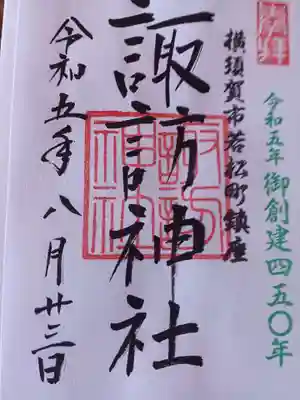 奉拝
令和五年 御創建四五〇年
横須賀市若松町鎮座
諏訪神社
令和五年八月廿三日